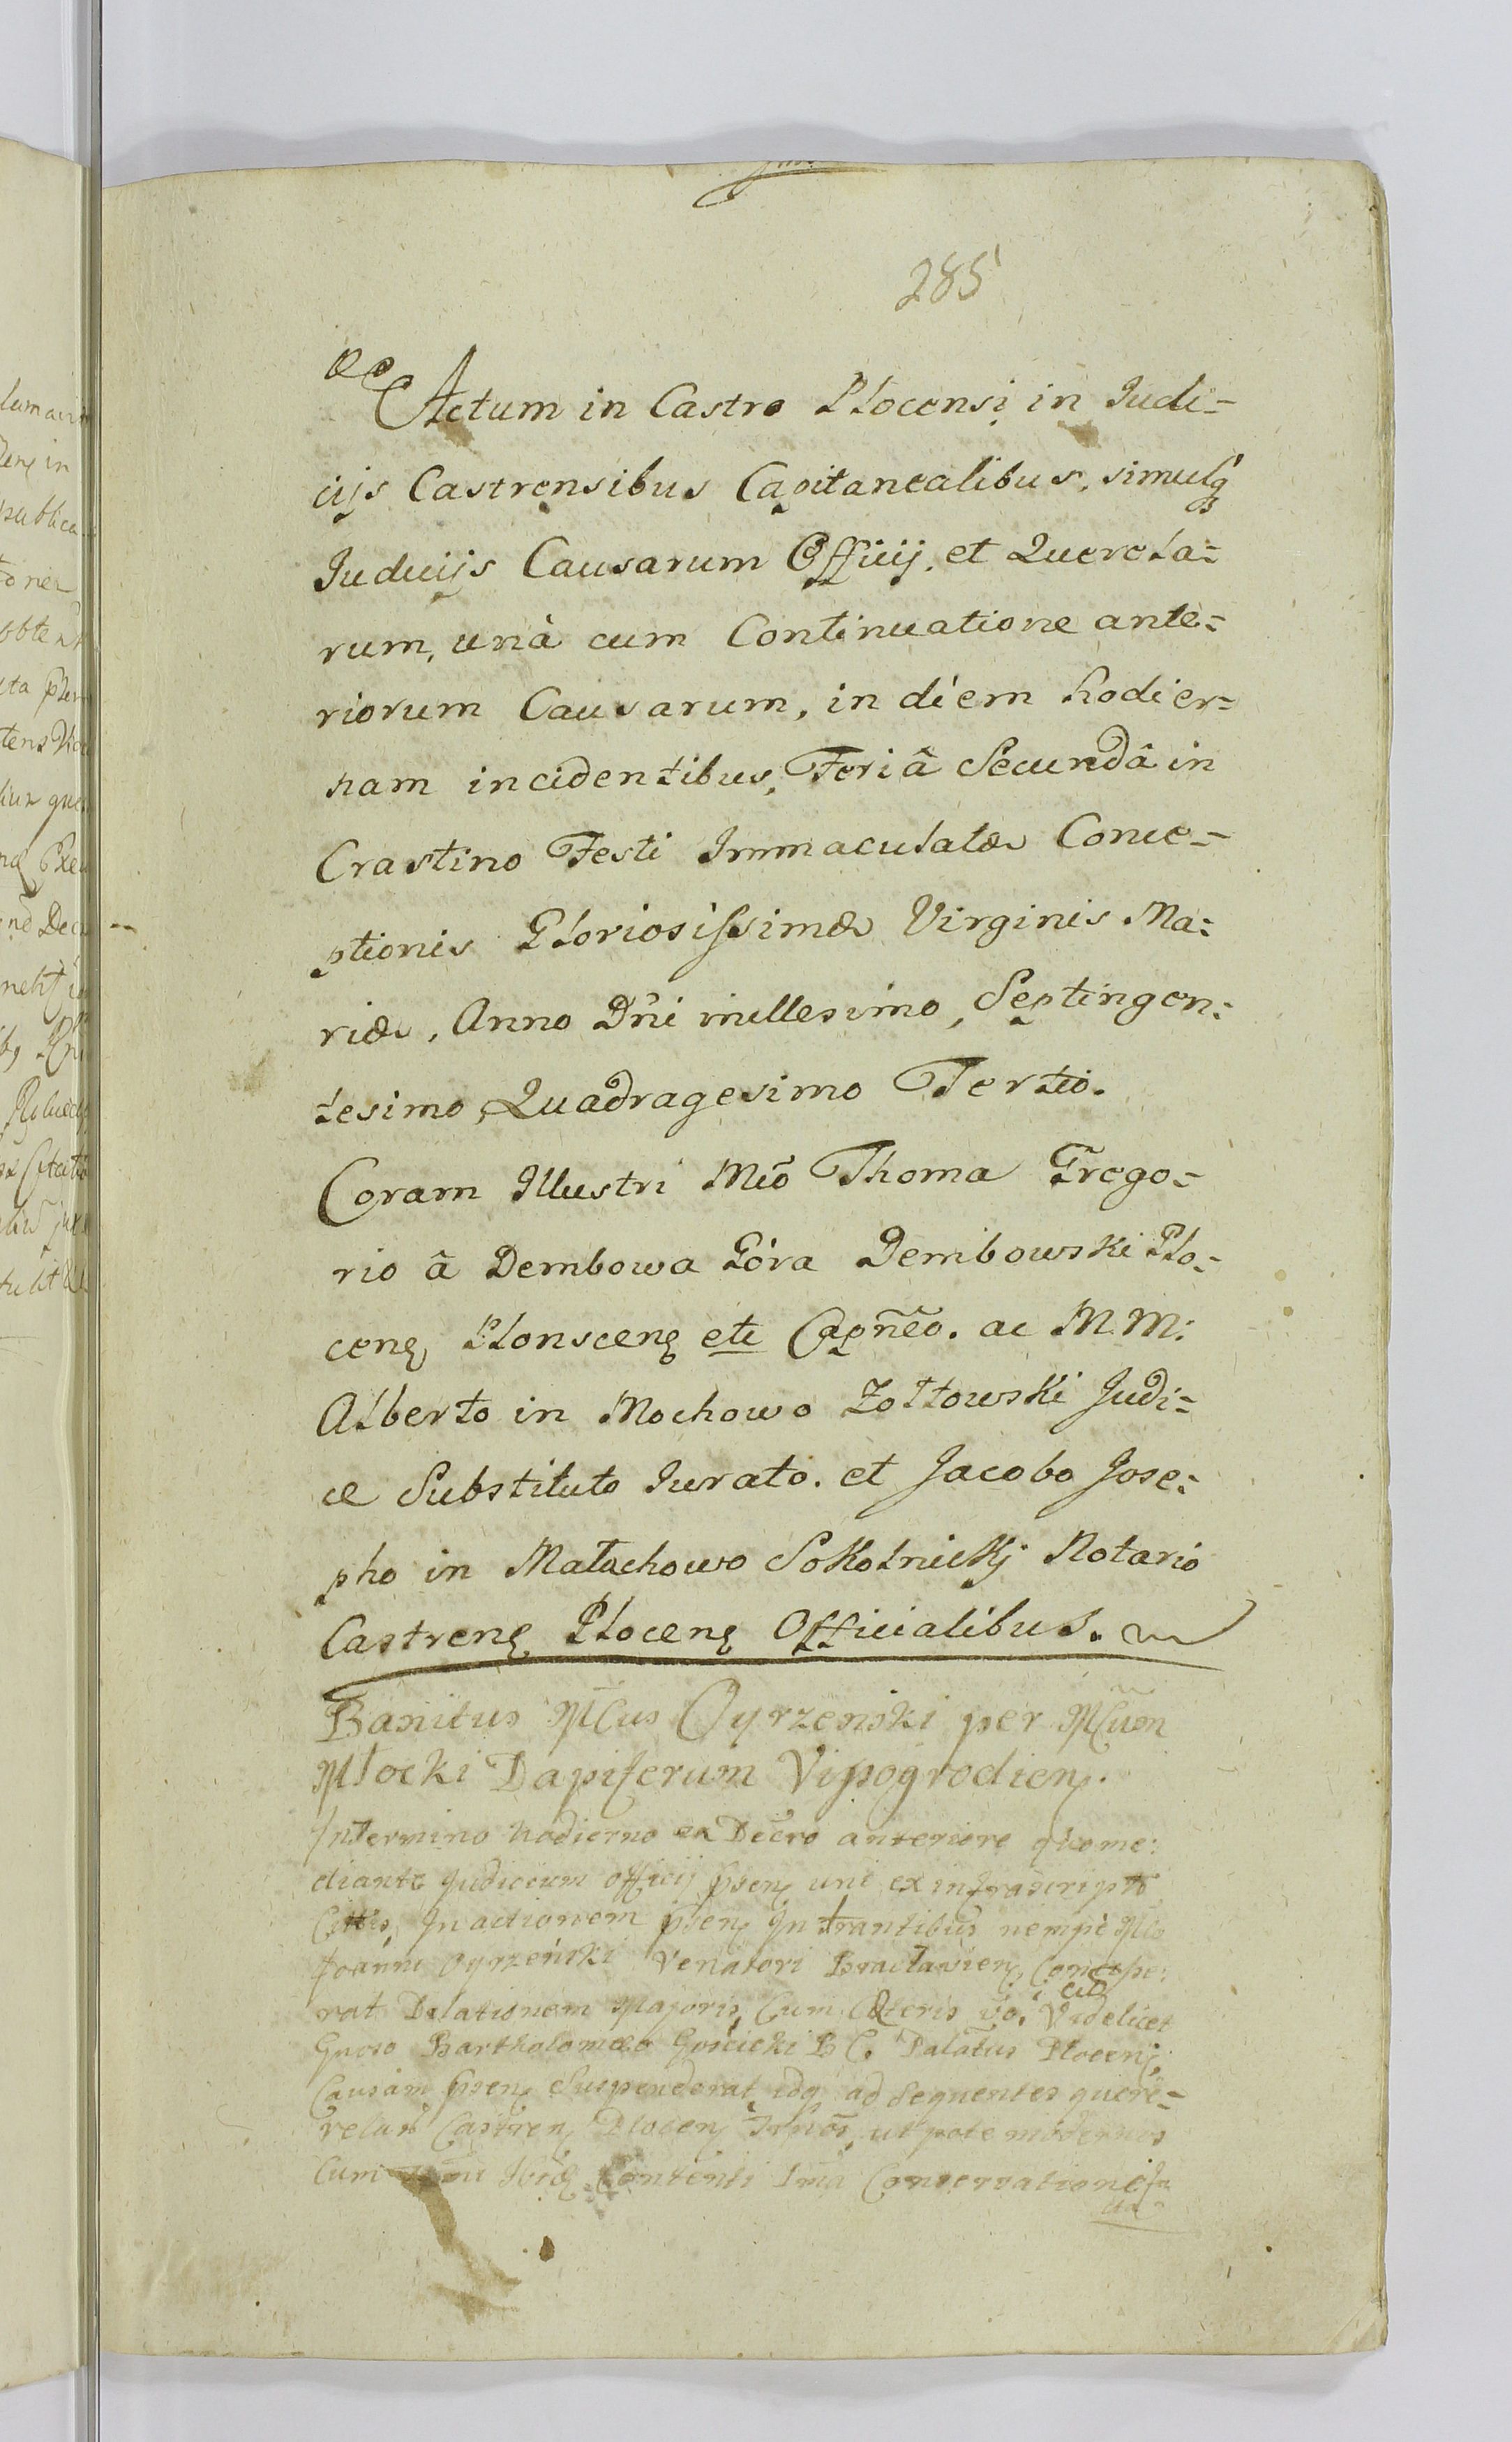 285
Actum in Castro Plocensi, in Judi=
cijs Castrensibus Capitanealibus, simulq
Judicijs Causarum Officij, et Querela=
rum, unà cum Continuatione ante=
riorum Causarum, in diem hodier=
nam incidentibus, Feriâ Secundâ in
Crastino Festi Immaculatæ Conce=
ptionis Gloriosissimæ Virginis Ma=
riæ, Anno Dñi millesimo, Septingen=
tesimo, Quadragesimo Tertio.
Coram Illustri Mco Thoma Grego=
rio â Dembowa Góra Dembowski Plo=
cen Plonscen etc Capneo. ac M.M:
Alberto in Mochowo Zołtowski Judi=
ce Substituto Jurato. et Jacobo Jose=
pho in Małachowo Sokolnickj Notario
Castren Plocen Officialibus.
Banitus Mcus Oyrzenski per Mcum
Młocki Dapiferum Visogrodien.
In termino hodierno ex Decro anteriore quo me:
diante Judicium officij psen uni ex infrascriptis
Cittis, In actionem psen Intrantibus nempè Mco
Joanni Oyrzenski Venatori Bracławien,
rat Dilationem Majoris, Cum Cæteris vo. Videlicet
Gnoso Bartholomæo Gościcki B C. Palatus Plocen,
Causam psen Suspenderat, idq ad Sequentes quere=
relar Castren Plocen utpote modernos
Cum Contenti Conservatione